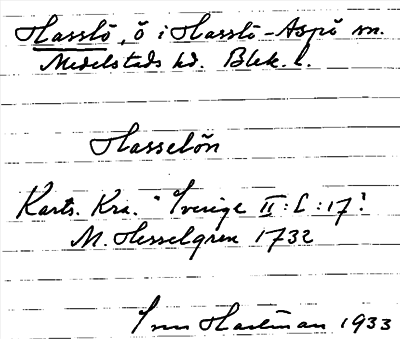 Hasslö, ö i Hasslö-Aspö sn.
Medelsteds hd. Blek. l.
Hasselön
Karts. Kra. "Sverige II:L:17"
M. Hesselgren 1732
Hartman 1933